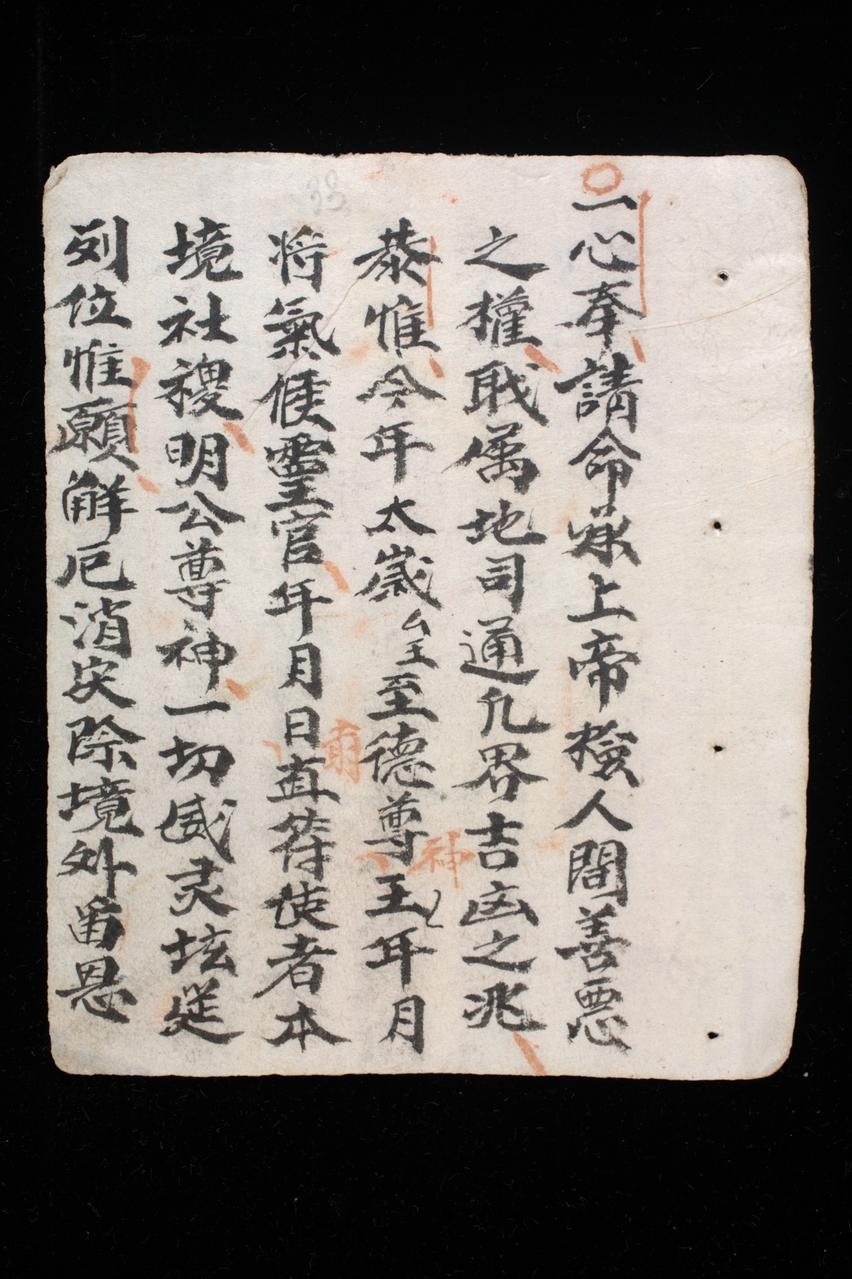 一心奉請命承上帝檢人間善惡
之權職属地司通凡界吉凶之兆
恭惟今年太歲至德尊王年月
神
將氣候靈官年月日直符使者本
境社稷明公尊神一切威灵坛筵
列位惟願解厄消灾除境外留恩
33